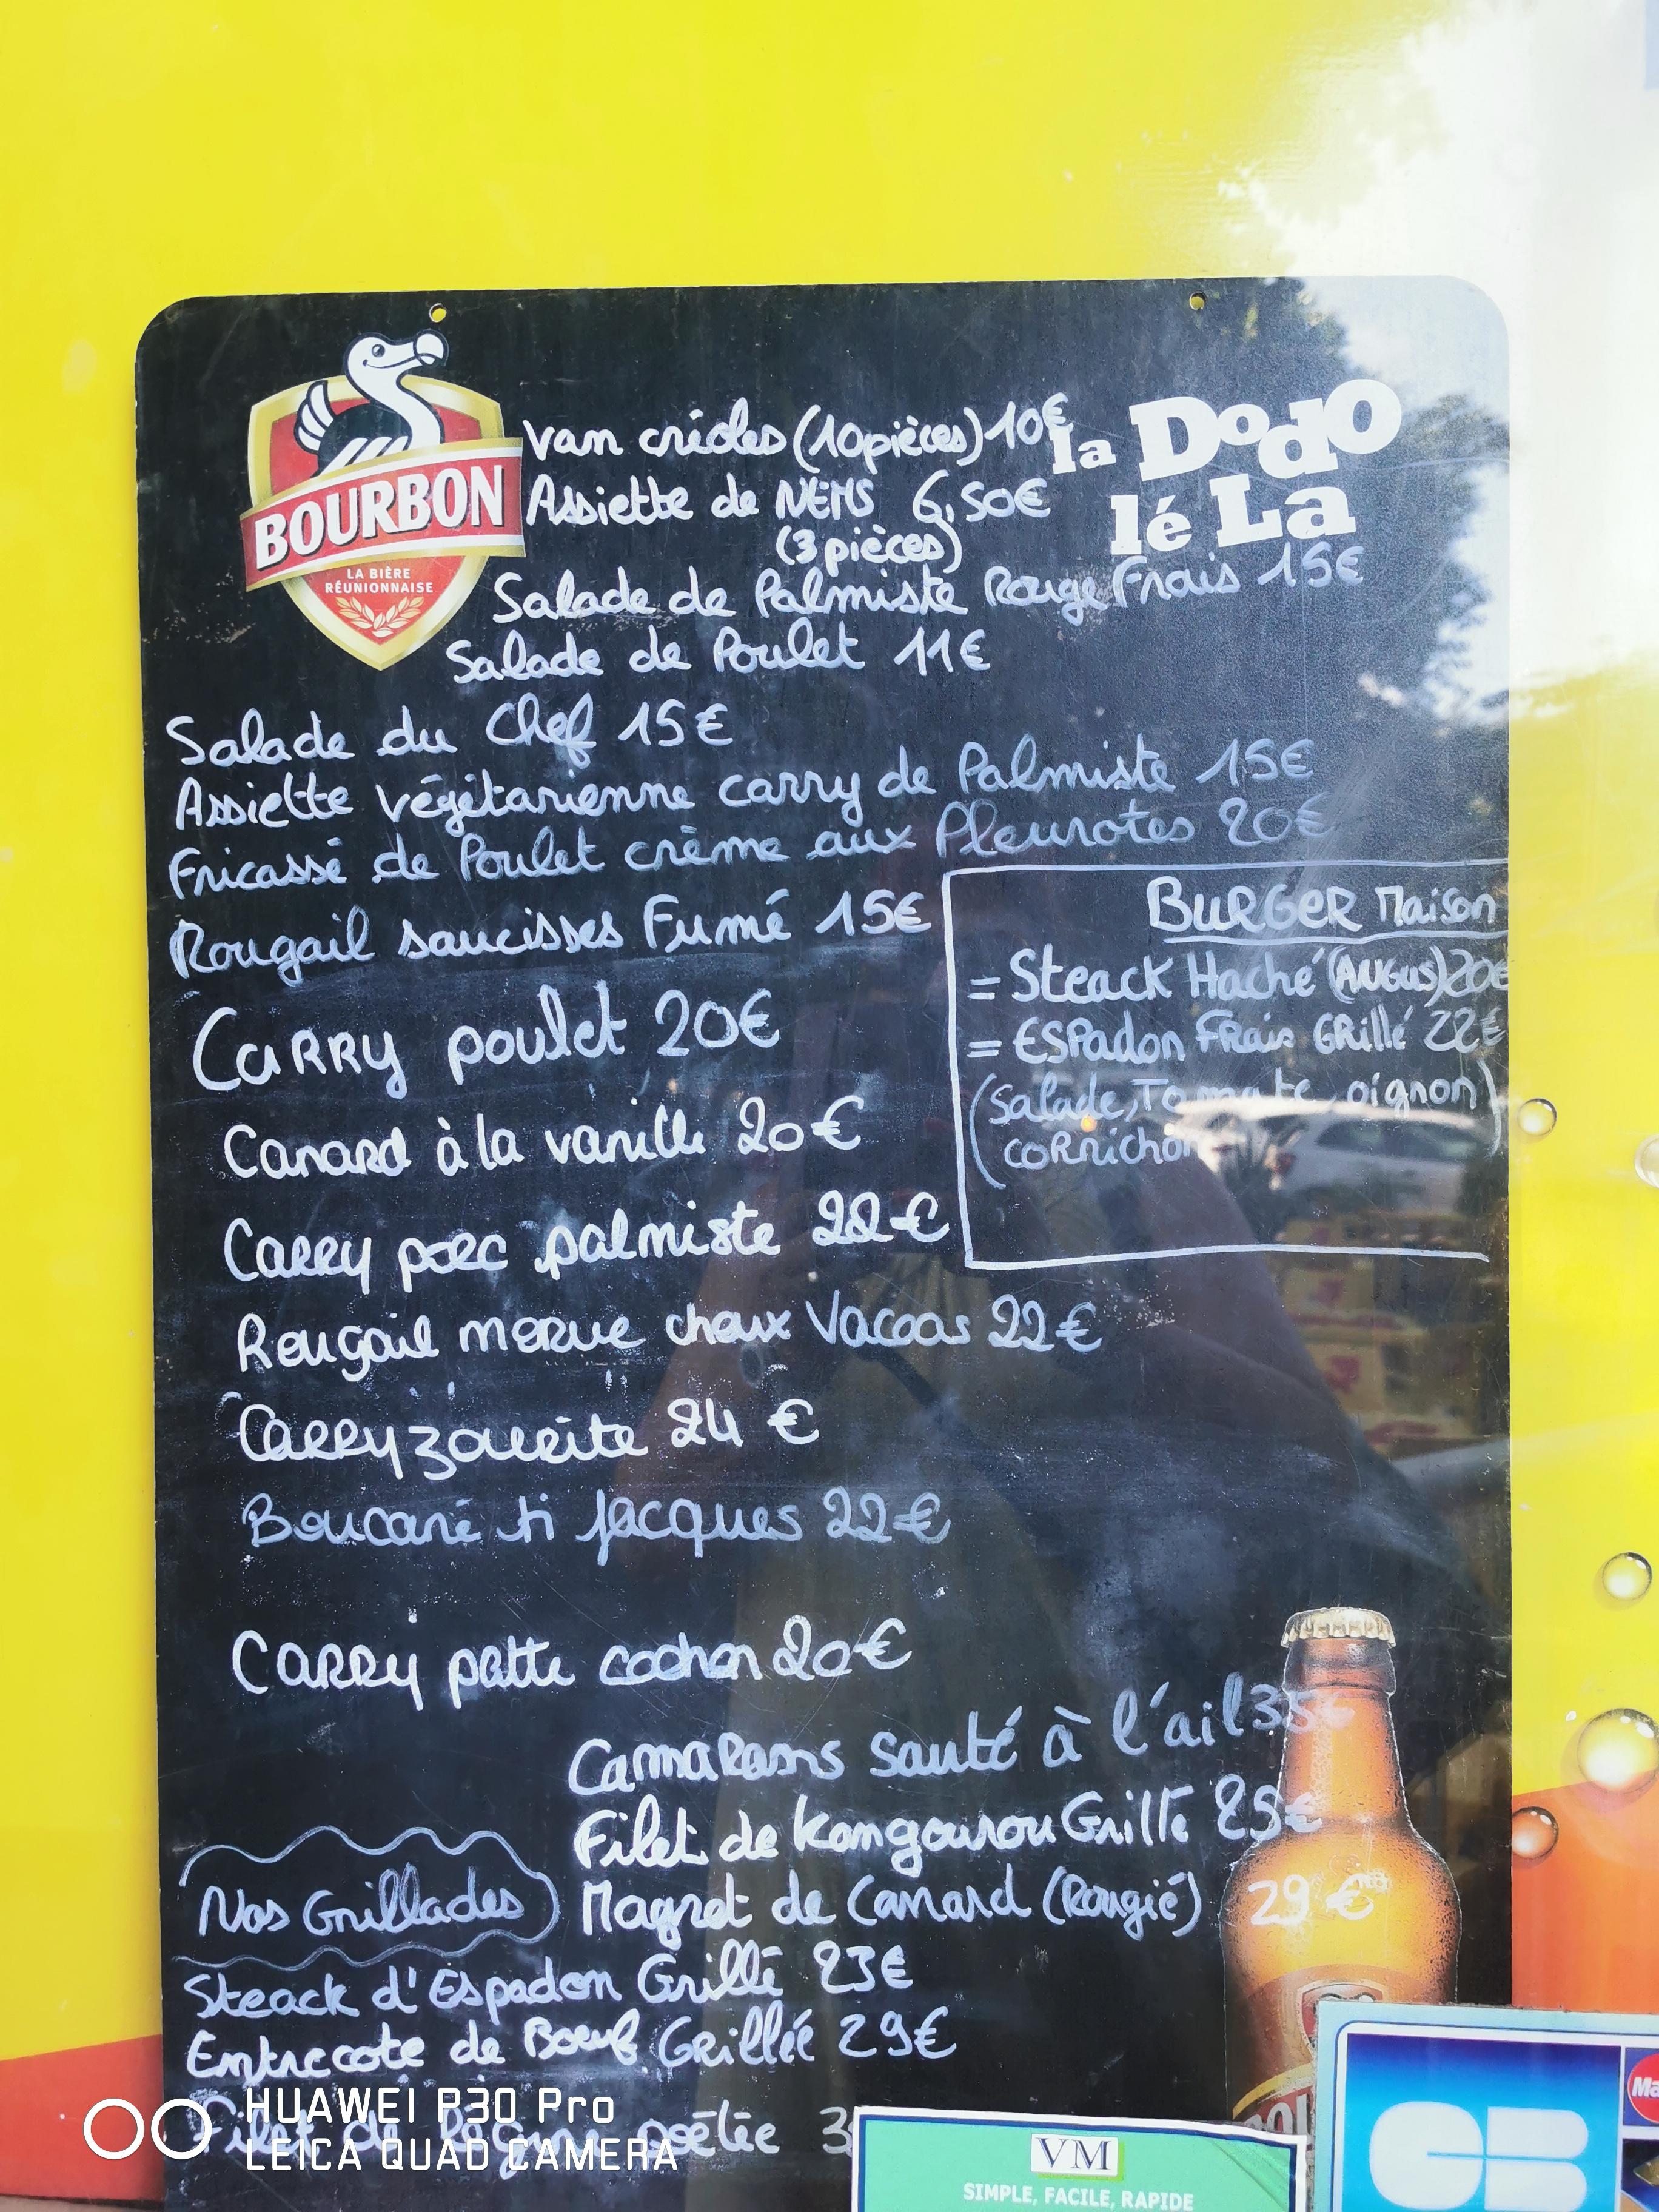 BOURBON
LA BIÈRE
RÉUNIONNAISE
la Dodo
lé La
Vam créoles (10 pièces) 10€
Assiette de NEMS 6,50€
(3 pièces)
Salade de Palmiste Rouge Frais 15€
Salade de Poulet 11€
Salade du Chef 15€
Assiette végétarienne carry de Palmiste 15€
Fricassé de Poulet crème aux Pleurotes 20€
Rougail saucisses Fumé 15€
BURGER Maison
= Steack Haché (ANGUS) 20€
= ESPadon Frais GRillé 22€
(Salade, Tomate, oignon)
(cornichon
CARRY poulet 20€
Canard à la vanille 20€
Carry porc palmiste 22€
Rougail morue choux Vacoas 22€
Carry zourite 24 €
Boucané ti jacques 22€
CARRY patte cochon 20€
Camarons sauté à l'ail 35€
Filet de Kangourou Grillé 25€
Nos Grillades
Magret de Canard (Rougié) 29 €
Steack d'Espadon Grillé 23€
Entrecote de Boeuf Grillée 29€
Filet de poêlée
HUAWEI P30 Pro
LEICA QUAD CAMERA
VM
SIMPLE, FACILE, RAPIDE
CB